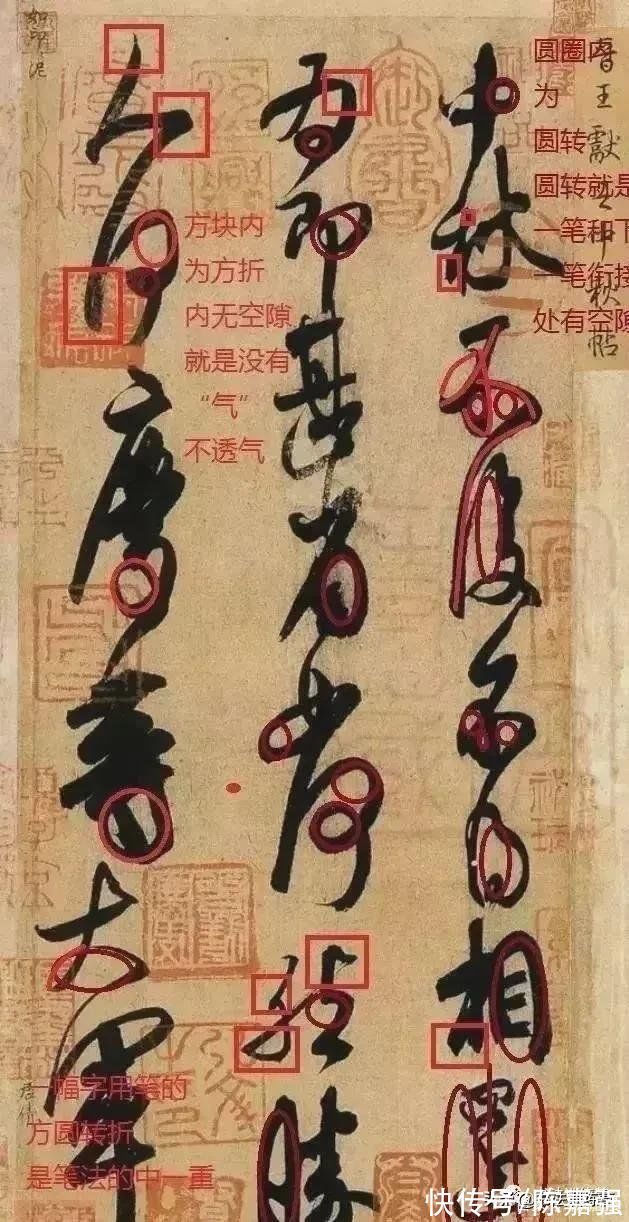 晉王獻之中秋帖
圆圈内
为
圆转
圆转就是
一笔和下
一笔衔接
处有空隙
中秋不復不得相還
為即甚省如何然勝
人何慶等大軍
方块内
为方折
内无空隙
就是没有
“气”
不透气
一幅字用笔的
方圆转折
是笔法的中一重
快传号/陈嘉强